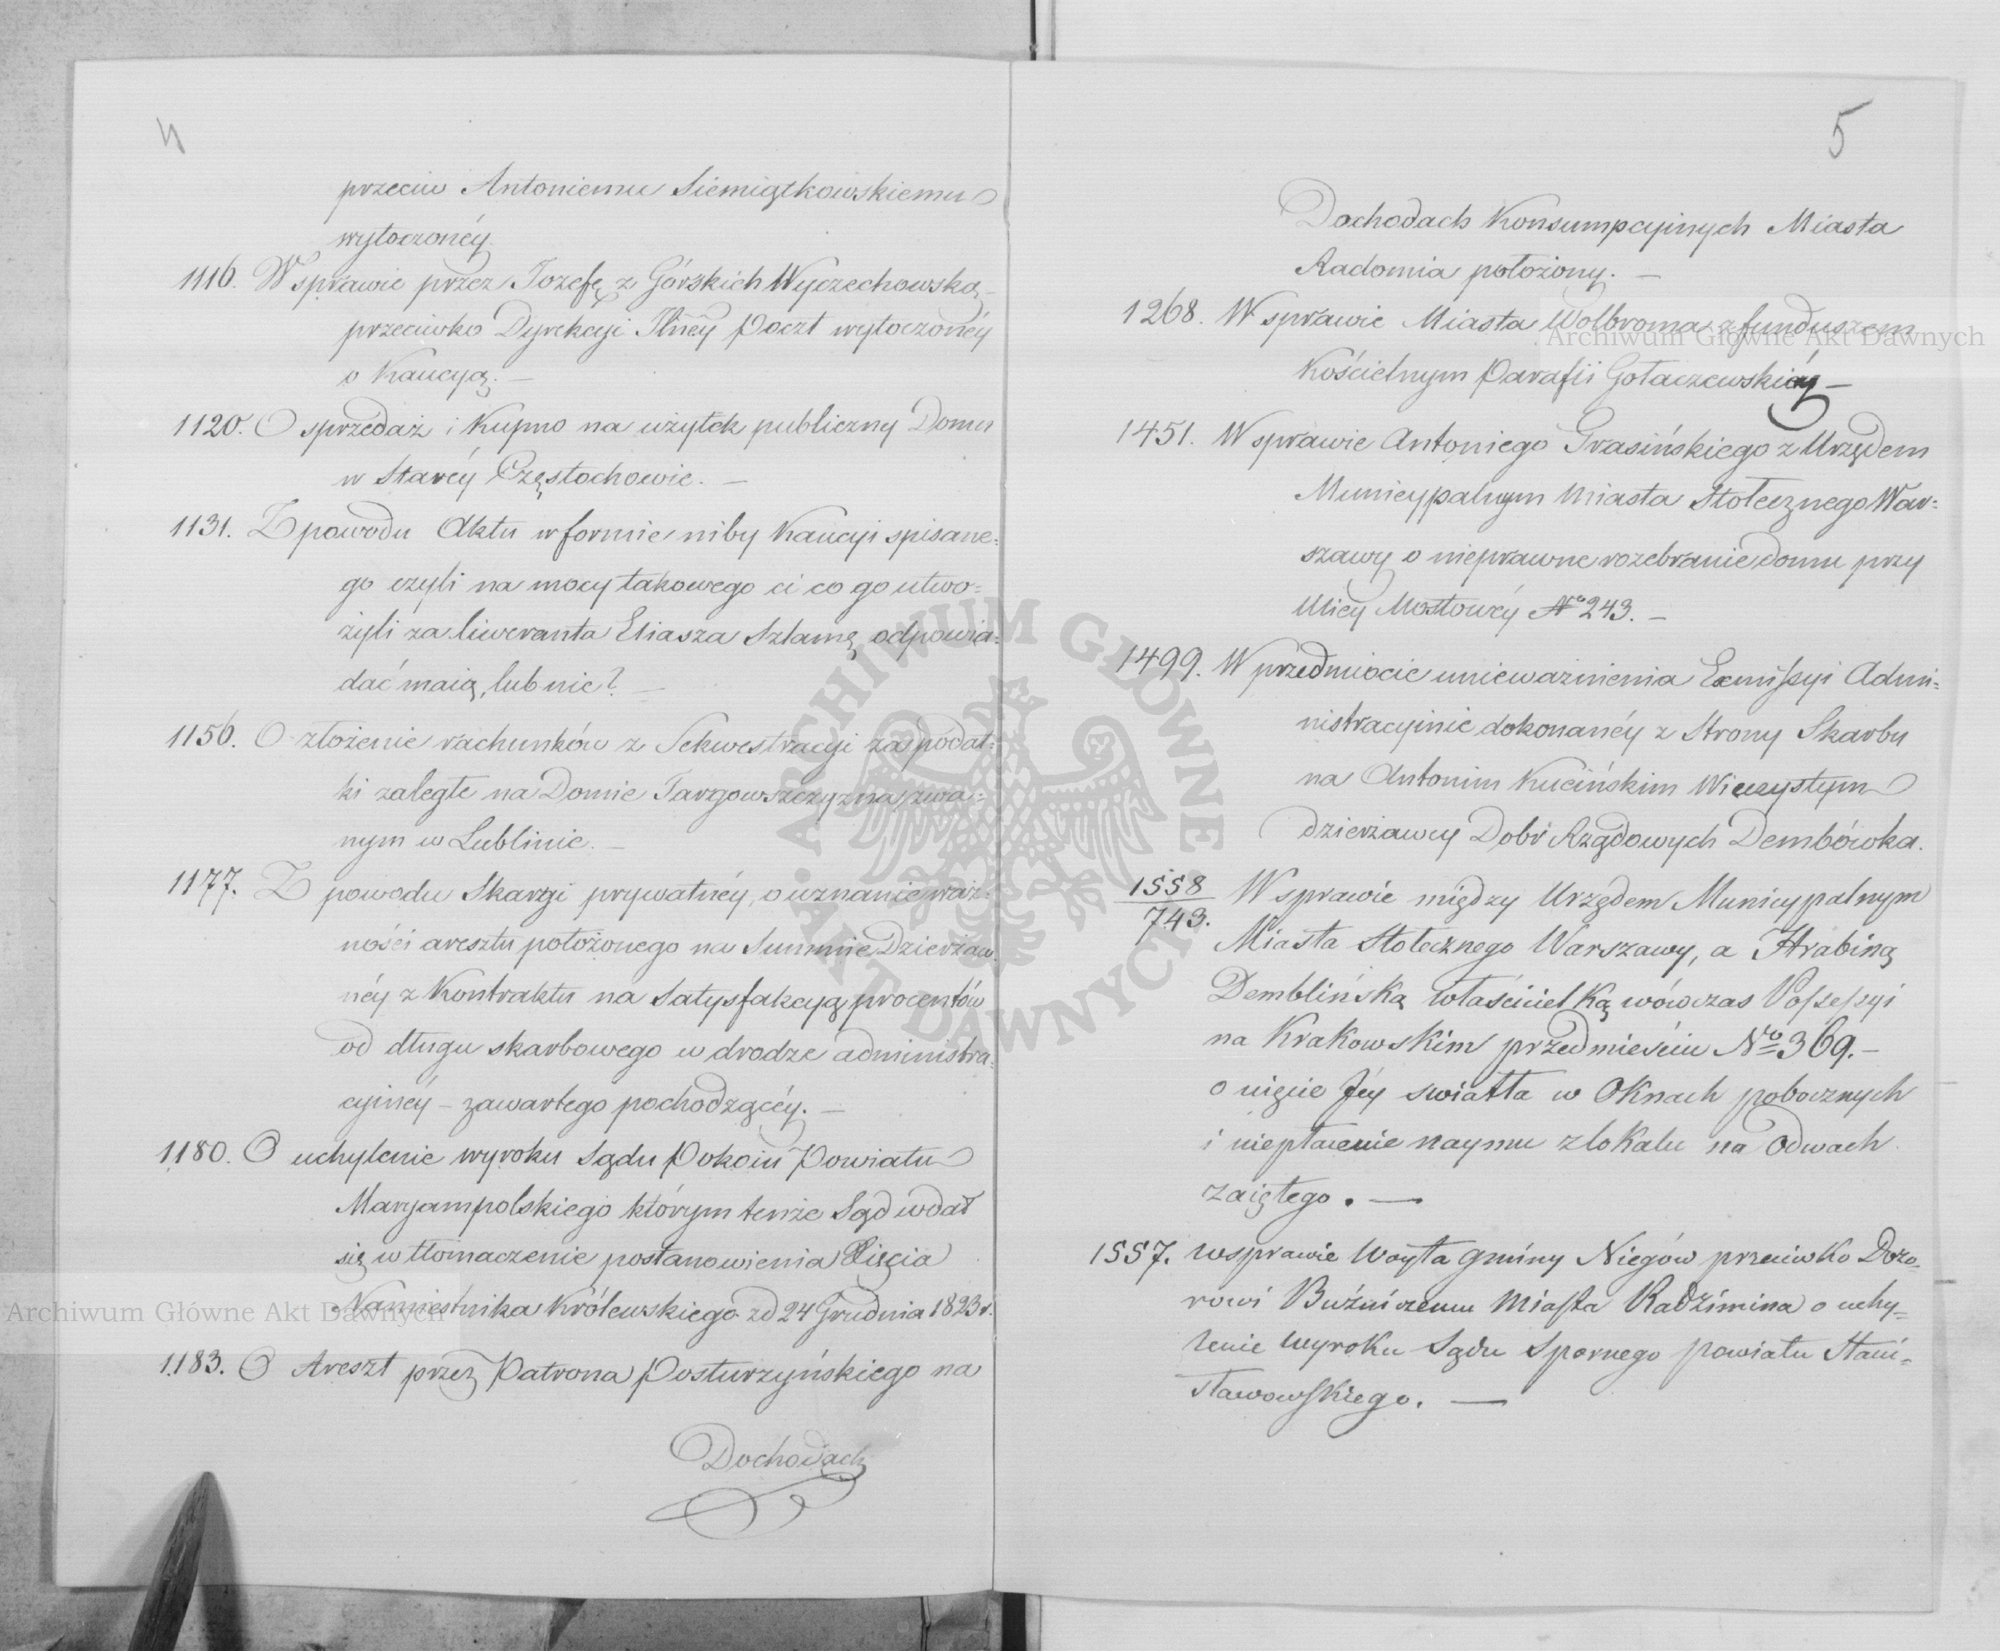 4
przeciw Antoniemu Siemiątkowskiemu
wytoczonéy.
1116. W sprawie przez Jozefę z Górskich Wyczechowską
przeciwko Dyrekcyi Jlnéy Poczt wytoczonéy
o Kaucyą. —
1120. O sprzedaż i Kupno na użytek publiczny Domu
w Staréy Częstochowie. —
1131. Z powodu Aktu w formie niby Kaucyi spisane=
go czyli na mocy takowego ci co go utwo=
żyli za liweranta Eliasza Szlamę odpowia=
dać maią, lub nie? —
1156. O złożenie rachunków z Sekwestracyi za podat=
ki zaległe na Domie Targowszczyzna zwa=
nym w Lublinie. —
1177. Z powodu Skargi prywatnéy, o uznanie waż=
ności aresztu położonego na Summie Dzierżaw=
néy z Kontraktu na Satysfakcyą procentów
od długu skarbowego w drodze administra=
cyinéy — zawartego pochodzącéy. —
1180. O uchylenie wyroku Sądu Pokoiu Powiatu
Maryampolskiego którym tenże Sąd wdał
się w tłomaczenie postanowienia Xięcia
Namiestnika Królewskiego zd 24 Grudnia 1823 r.
1183. O Areszt przez Patrona Posturzyńskiego na
Dochodach
5
Dochodach Konsumpcyinych Miasta
Radomia położony. —
1268. W sprawie Miasta Wolbroma z funduszem
Kościelnym Parafii Gołaczewskiéy —
1451. W sprawie Antoniego Grasińskiego z Urzędem
Municypalnym Miasta Stołecznego War=
szawy o nieprawne rozebranie domu przy
Ulicy Mostowéy No 243. —
1499. W przedmiocie unieważnienia Exmissyi Admi=
nistracyinie dokonanéy z Strony Skarbu
na Antonim Kucińskim Wieczystym
dzierżawcy Dobr Rządowych Dembówka.
1558
743. W sprawie między Urzędem Municypalnym
Miasta Stołecznego Warszawy, a Hrabiną
Demblińską właścicielką wówczas Possessyi
na Krakowskim przedmieściu Nro 369. —
o uięcie Jéy swiatła w Oknach pobocznych
i niepłacenie naymu z lokalu na Odwach
zaiętego. —
1557. w sprawie Woyta gminy Niegów przeciwko Dozo=
rowi Bużniczemu Miasta Radzimina o uchy=
lenie Wyroku Sądu Spornego powiatu Stani=
sławowskiego. —
Archiwum Główne Akt Dawnych
Archiwum Główne Akt Dawnych
ARCHIWUM GŁÓWNE · AKT DAWNYCH ·